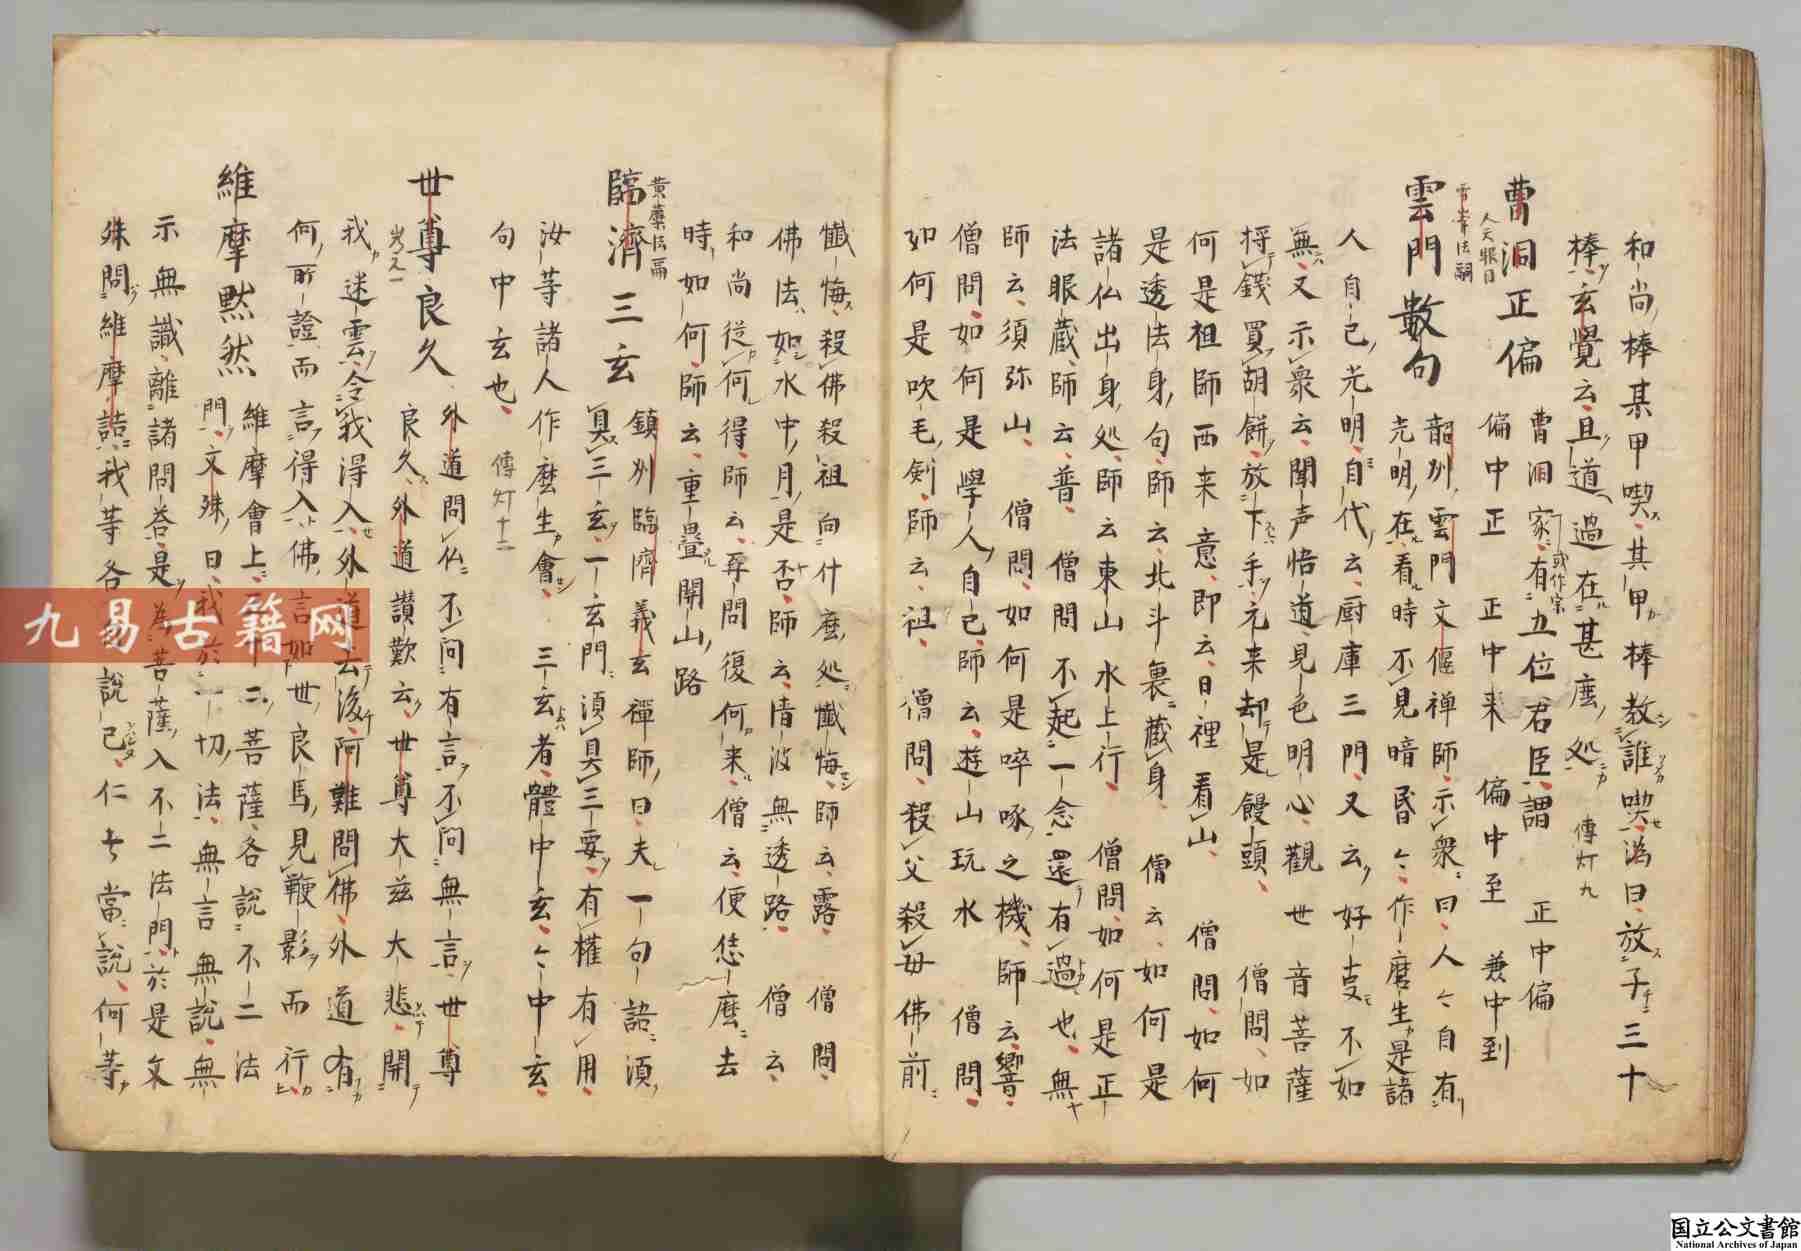 和尚棒某甲喫某甲棒教誰喫溈曰放子三十
棒玄覺云且道過在甚麼処 傳灯九
曹洞正偏 人天眼目 曹洞家有五位君臣謂 正中偏
或作宗
偏中正 正中来 偏中至 兼中到
雲門數句 雪峯法嗣 韶州雲門文偃禅師示衆曰人々自有
光明在看時不見暗昏々作麽生是諸
人自己光明自代云厨庫三門又云好㕝不如
無又示衆云聞声悟道見色明心觀世音菩薩
将錢買胡餅放下手元来却是饅頭 僧問如
何是祖師西来意即云日裡看山 僧問如何
是透法身句師云北斗裏蔵身 僧云如何是
諸仏出身処師云東山水上行 僧問如何是正
法眼蔵師云普 僧問不起一念還有過也無
師云須弥山 僧問如何是啐啄之機師云響
僧問如何是學人自己師云遊山玩水 僧問
如何是吹毛剣師云祖 僧問殺父殺母佛前
懺悔殺佛殺祖向什麽処懺悔師云露 僧問
佛法如水中月是否師云清波無透路 僧云
和尚従何得師云再問復何来僧云便恁麽去
時如何師云重疊開山路
臨濟三玄 黄蘗法嗣 鎮州臨濟義玄禪師曰夫一句語須
具三玄一玄門須具三要有權有用
汝等諸人作麽生會 三玄者體中玄々中玄
句中玄也 傳灯十二
世尊良久 外道問仏不問有言不問無言世尊
良久外道讃歎云世尊大茲大悲開
我迷雲令我得入外道去後阿難問佛外道有
何所證而言得入佛言如世良馬見鞭影而行
維摩黙然 維摩會上三十二菩薩各説不二法
門文殊曰我於一切法無言無説無
示無識離諸問荅是為菩薩入不二法門於是文
殊問維摩詰我等各説已仁者當説何等
九易古籍网
国立公文書館
National Archives of Japan